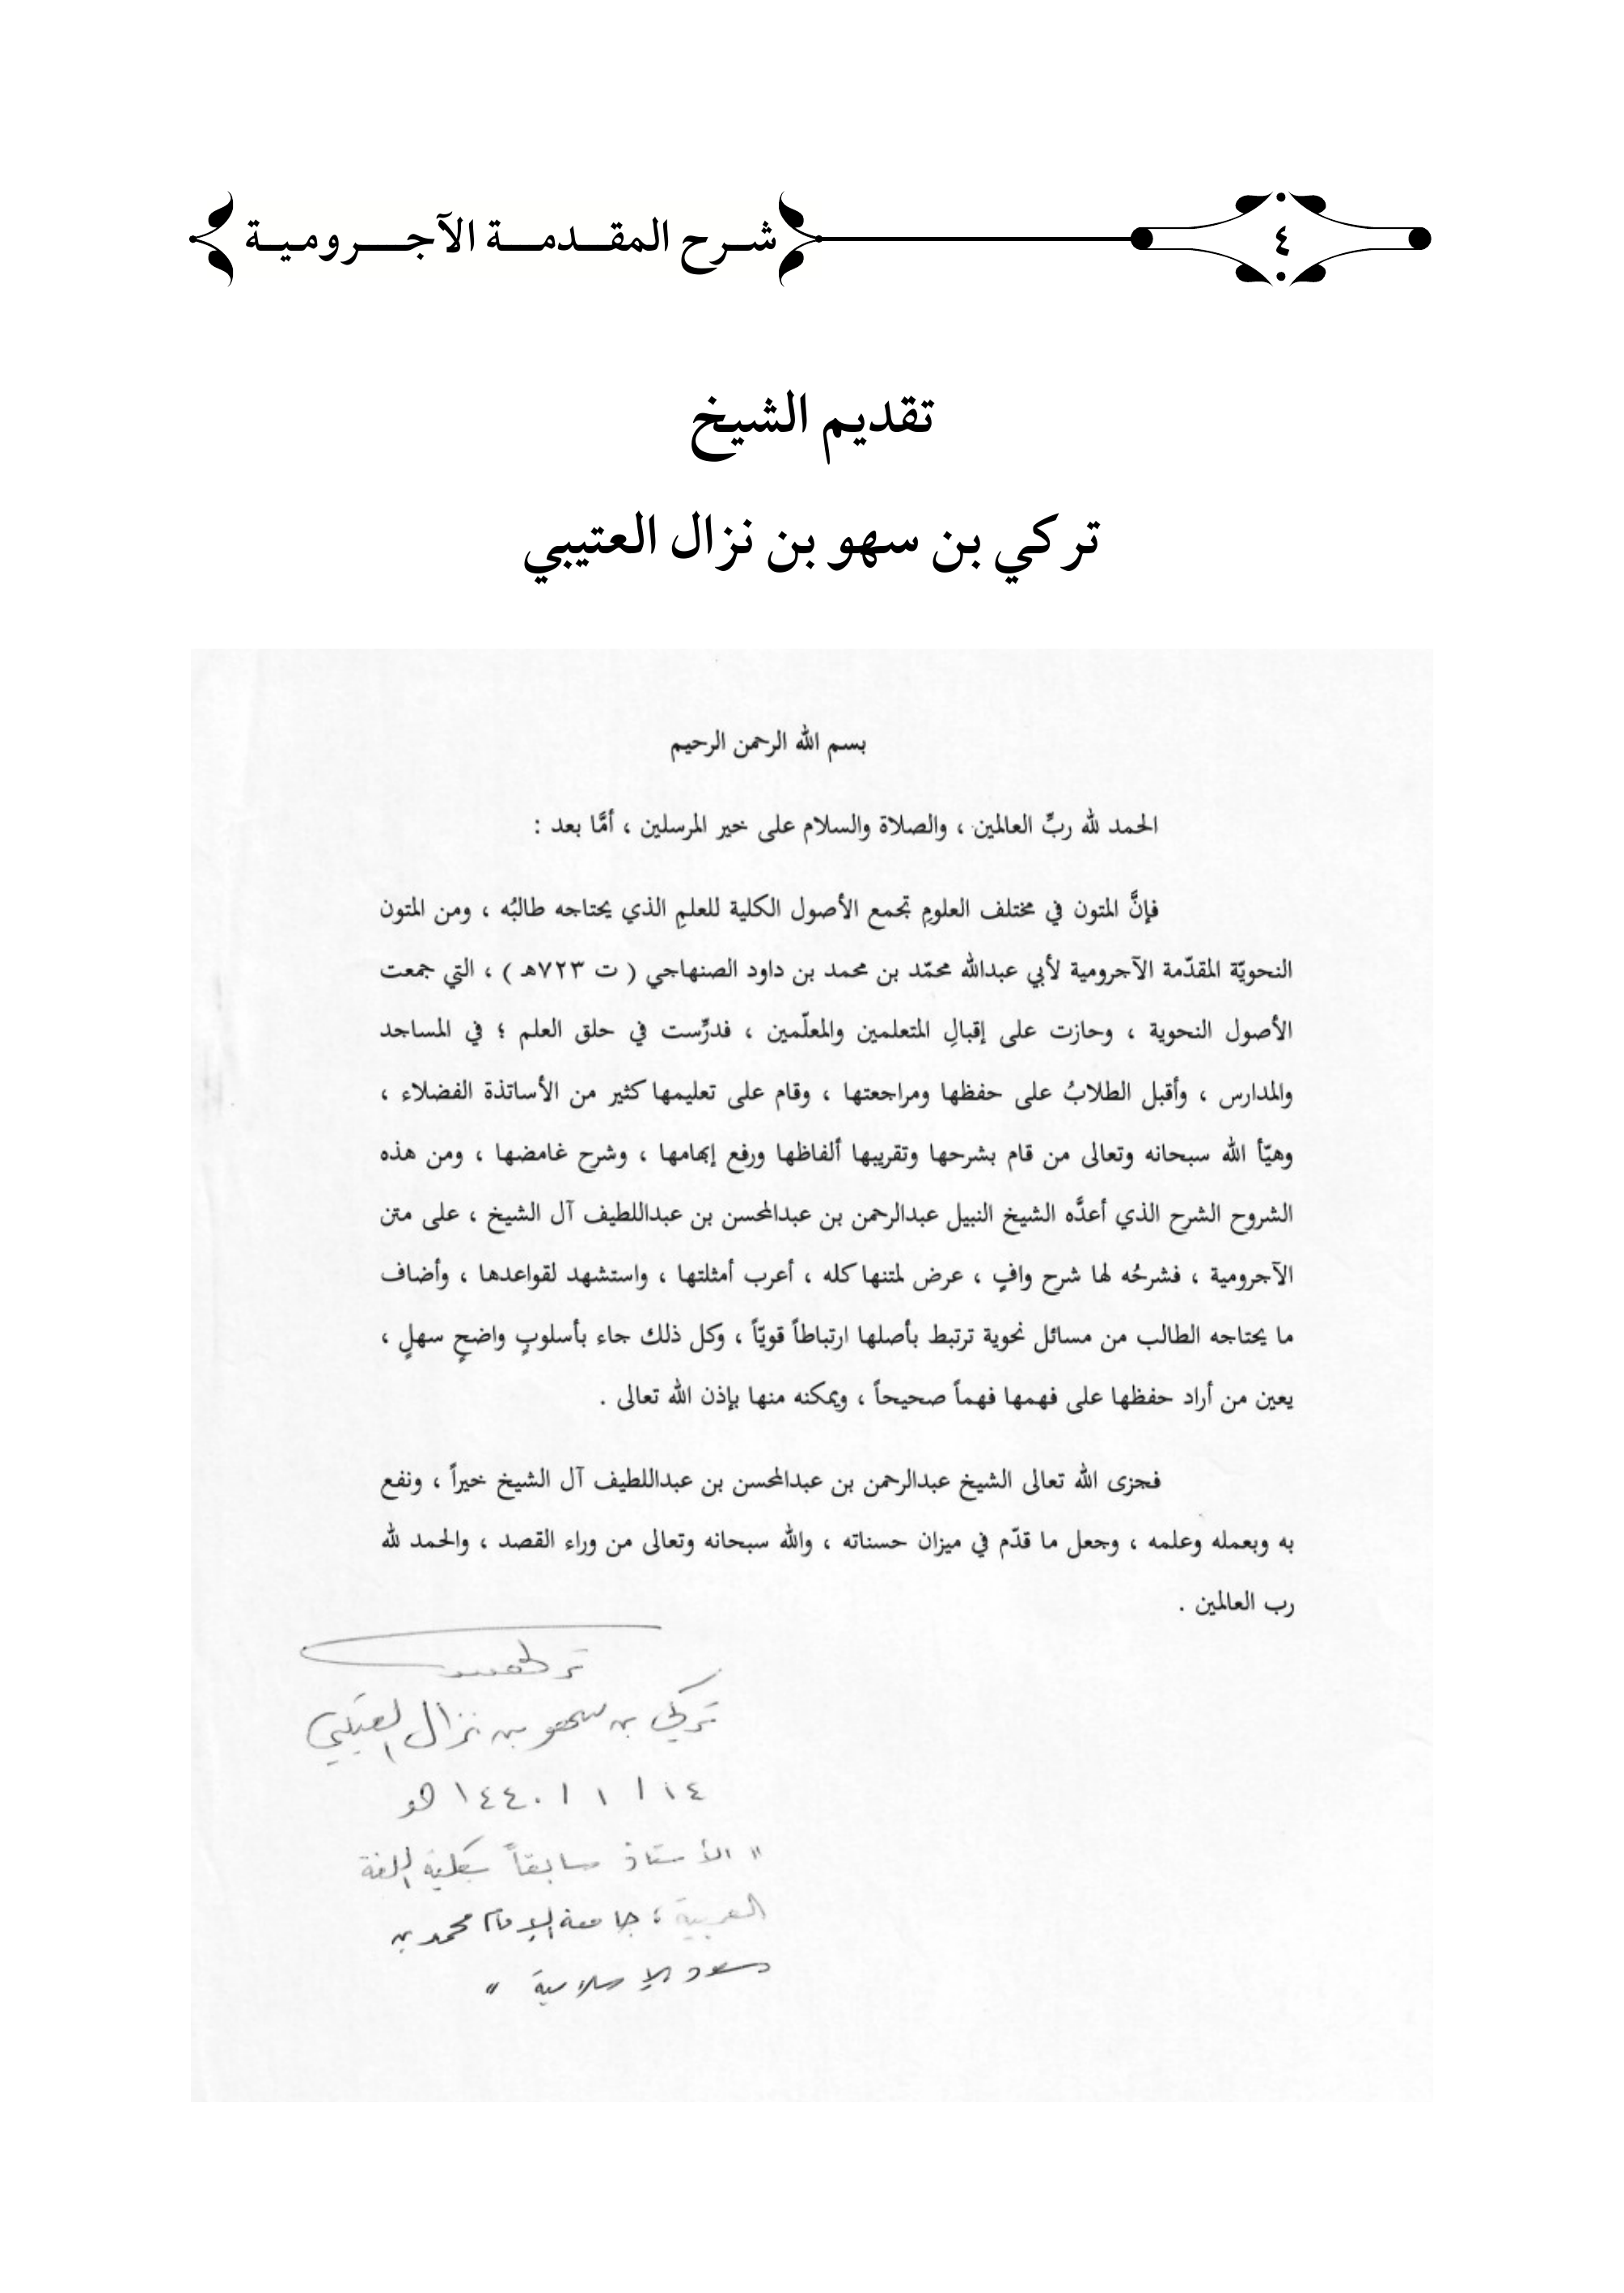 ٤
شرح المقدمة الآجرومية
تقديم الشيخ
تركي بن سهو بن نزال العتيبي
بسم الله الرحمن الرحيم
الحمد لله ربِّ العالمين ، والصلاة والسلام على خير المرسلين ، أمَّا بعد :
فإنَّ المتون في مختلف العلومِ تجمع الأصول الكلية للعلمِ الذي يحتاجه طالبُه ، ومن المتون
النحويّة المقدّمة الآجرومية لأبي عبدالله محمّد بن محمد بن داود الصنهاجي ( ت ٧٢٣هـ ) ، التي جمعت
الأصول النحوية ، وحازت على إقبالِ المتعلمين والمعلّمين ، فدرِّست في حلق العلم ؛ في المساجد
والمدارس ، وأقبل الطلابُ على حفظها ومراجعتها ، وقام على تعليمها كثير من الأساتذة الفضلاء ،
وهيّأ الله سبحانه وتعالى من قام بشرحها وتقريبها ألفاظها ورفع إبهامها ، وشرح غامضها ، ومن هذه
الشروح الشرح الذي أعدَّه الشيخ النبيل عبدالرحمن بن عبدالمحسن بن عبداللطيف آل الشيخ ، على متن
الآجرومية ، فشرحُه لها شرح وافٍ ، عرض لمتنها كله ، أعرب أمثلتها ، واستشهد لقواعدها ، وأضاف
ما يحتاجه الطالب من مسائل نحوية ترتبط بأصلها ارتباطاً قويّاً ، وكل ذلك جاء بأسلوبٍ واضحٍ سهلٍ ،
يعين من أراد حفظها على فهمها فهماً صحيحاً ، ويمكنه منها بإذن الله تعالى .
فجزى الله تعالى الشيخ عبدالرحمن بن عبدالمحسن بن عبداللطيف آل الشيخ خيراً ، ونفع
به وبعمله وعلمه ، وجعل ما قدّم في ميزان حسناته ، والله سبحانه وتعالى من وراء القصد ، والحمد لله
رب العالمين .
تركي بن سهو بن نزال العتيبي
١٤ / ١ / ١٤٤٠ هـ
" الأستاذ سابقاً بكلية اللغة
العربية ؛ جامعة الإمام محمد بن
سعود الإسلامية "